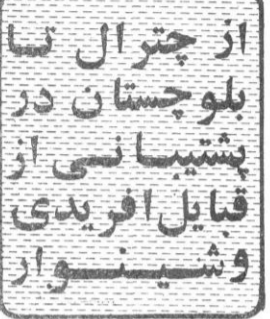 از چترال تا
بلوچستان در
پشتیبانی از
قبایل افریدی
و شینوار